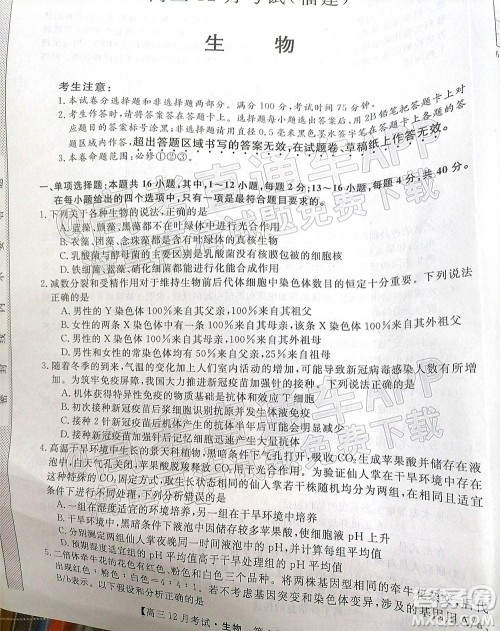 高三12月考试(福建)
生 物
考生注意:
1.本试卷分选择题和非选择题两部分。满分100分,考试时间75分钟。
2.考生作答时,请将答案答在答题卡上。选择题每小题选出答案后,用2B铅笔把答题卡上对
应题目的答案标号涂黑;非选择题请用直径0.5毫米黑色墨水签字笔在答题卡上各题
的答题区域内作答,超出答题区域书写的答案无效,在试题卷、草稿纸上作答无效。
3.本卷命题范围:必修①②③。
一、单项选择题:本题共16小题,其中,1~12小题,每题2分;13~16小题,每题4分,共40分。
在每小题给出的四个选项中,只有一项是最符合题目要求的。
1.下列关于各种生物的说法,正确的是
A.蓝藻、颤藻、黑藻都不在叶绿体中进行光合作用
B.衣藻、团藻、念珠藻都是含有叶绿体的真核生物
C.乳酸菌与酵母菌中乳酸菌没有核膜包被的细胞核
D.铁细菌、蓝藻、硝化细菌都能进行光合作用
2.减数分裂和受精作用对于维持生物前后代体细胞中染色体数目的恒定十分重要。下列说法
正确的是
A.男性的Y染色体100%来自其父亲,100%来自其祖父
B.女性的两条X染色体中有一条100%来自其母亲,100%来自其外祖父
C.男性的X染色体100%来自其母亲,100%来自其外祖父
D.男性和女性的常染色体均有50%来自父方,25%来自其外祖父
3.随着冬季的到来,气温的变化加上人们室内活动的增加,可能导致新冠病毒感染人数有所增
加。为筑牢免疫屏障,我国大力推进新冠疫苗加强针的接种。下列说法正确的是
A.机体特异性免疫的物质基础是抗体和效应T细胞
B.接种新冠疫苗后淋巴细胞的细胞周期变长
C.接种新冠疫苗加强针主要是为了增加记忆细胞和抗体的数量
D.接种新冠疫苗加强针会激活细胞免疫通过释放淋巴因子消灭病毒
4.高温干旱环境下的景天科植物,夜晚黑暗条件下气孔打开,吸收CO₂生成苹果酸并储存在液
泡中,白天气孔关闭,苹果酸脱羧释放CO₂用于光合作用。为验证仙人掌在干旱环境中存在
这种特殊的CO₂固定方式,取生长状态相同的仙人掌若干株随机均分为两组,在其他环境
条件下进行实验,下列有关叙述错误的是
A.一组在湿度适宜的环境中培养,另一组在干旱环境中培养
B.干旱环境中,黑暗条件下液泡因储存较多苹果酸,使细胞液pH上升
C.分别测定两组仙人掌夜间同一时间细胞液的pH,并计算每组平均值
D.湿度适宜组的pH平均值高于干旱处理组的pH平均值
出现红色:粉色:白色=4:4:1。若将
B/b表示。以下叙述
【高三12月考试·生物